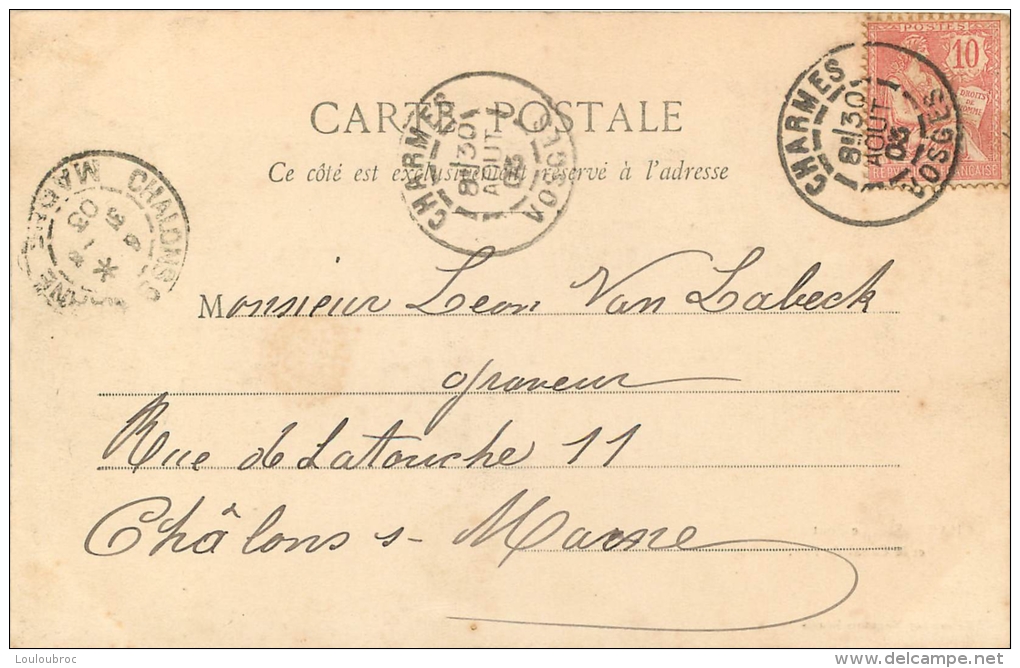 POSTES
10
DROITS
DE
CARTE POSTALE
Ce côté est exclusivement réservé à l'adresse
CHARMES
8E/30
AOUT
03
VOSGES
CHARMES
8E/30
AOUT
03
VOSGES
CHALONS
MARNE
03
Monsieur Leon Van Labeck
graveur
Rue de Latouche 11
Châlons s- Marne
Louloubroc
www.delcampe.net